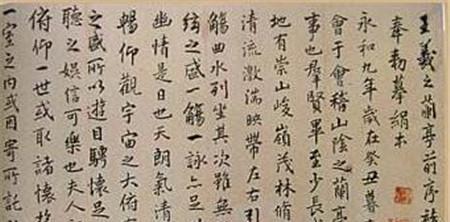 王羲之蘭亭前序
奉勅摹絹本
永和九年歲在癸丑暮
會于會稽山陰之蘭亭
事也羣賢畢至少長
地有崇山峻嶺茂林脩
清流激湍映帶左右引
觴曲水列坐其次雖無
絃之盛一觴一詠亦足
幽情是日也天朗氣清
暢仰觀宇宙之大俯
之盛所以遊目騁懷足
聽之娛信可樂也夫人
俯仰一世或取諸懷
一室之內或因寄所託